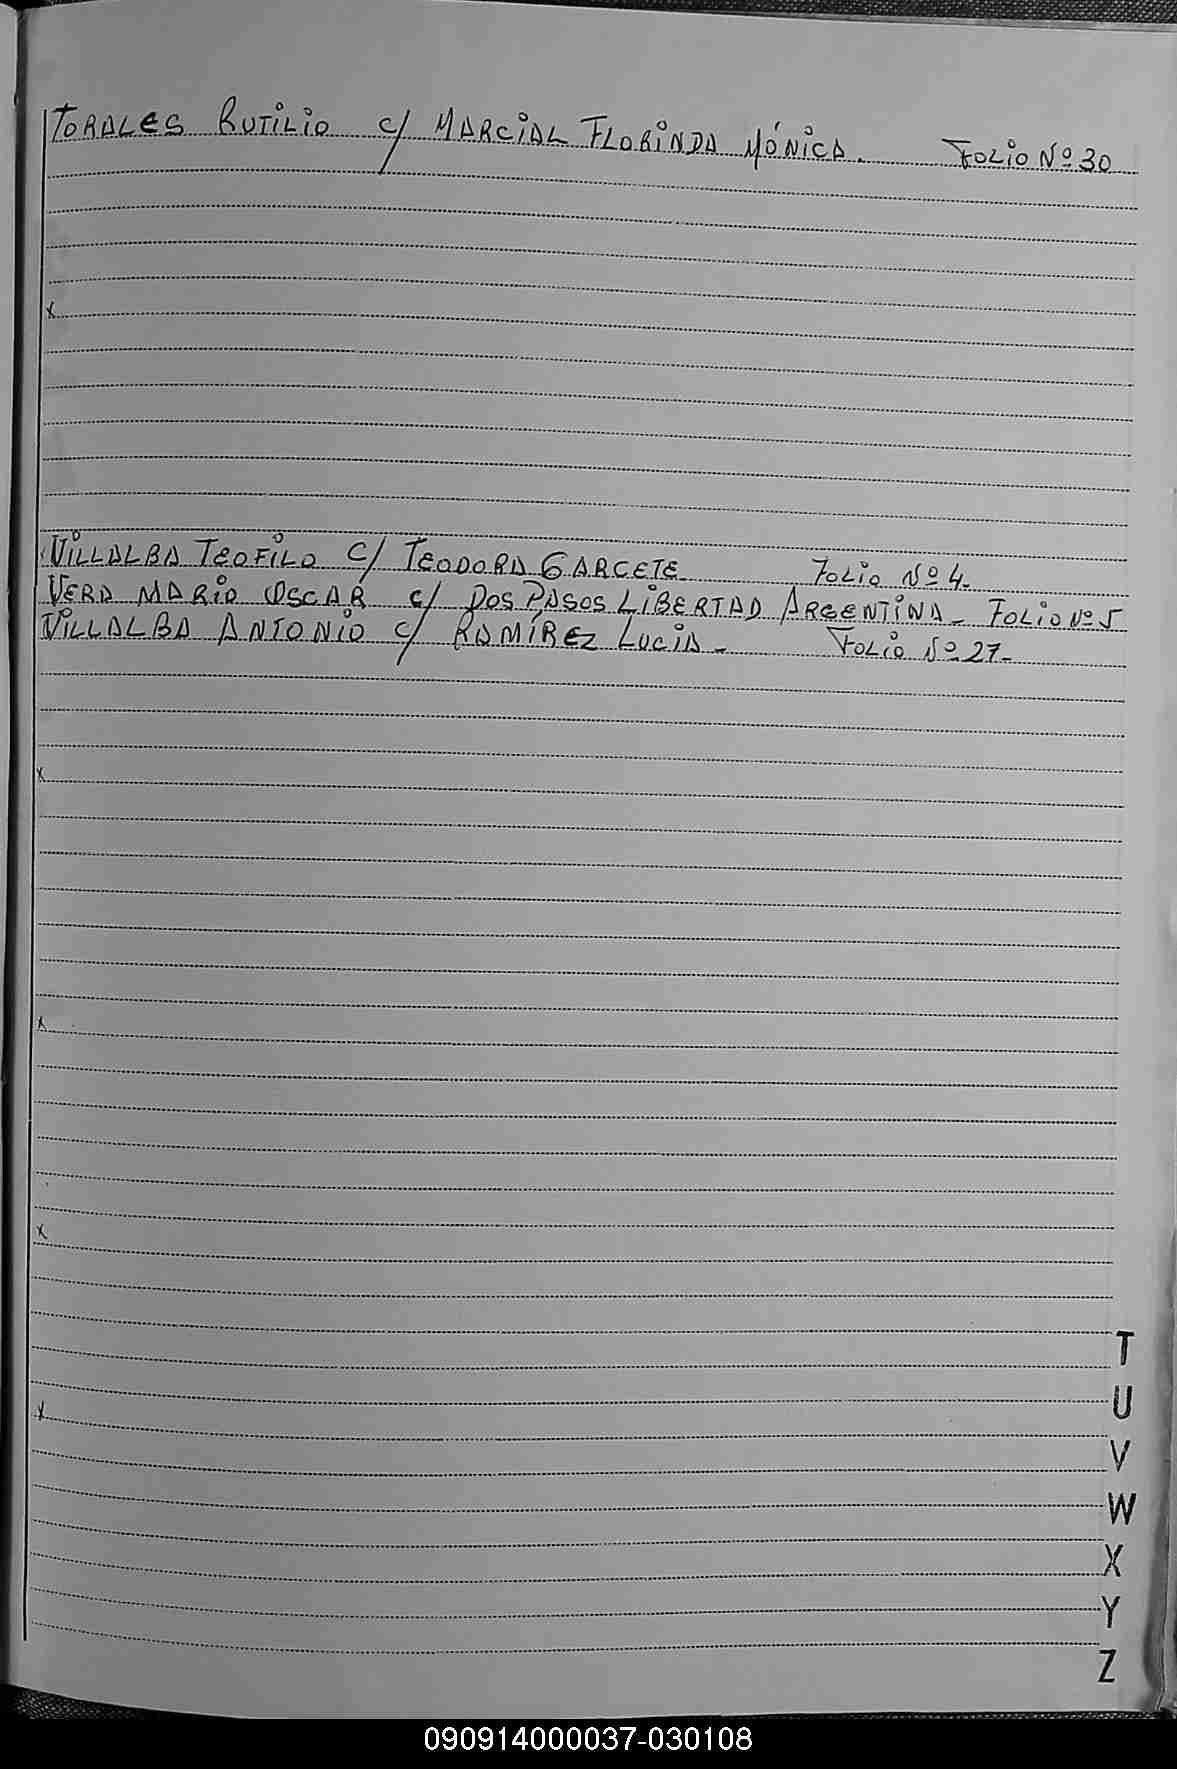 TORALES RUTILIO C/ MARCIAL FLORINDA MÓNICA. FOLIO Nº 30
x
VILLALBA TEOFILO C/ TEODORA GARCETE FOLIO Nº 4.
VERA MARIO OSCAR C/ DOS PASOS LIBERTAD ARGENTINA- FOLIO Nº 5
VILLALBA ANTONIO C/ RAMÍREZ LUCIA- FOLIO Nº 27-
x
x
x
x
T
U
V
W
X
Y
Z
090914000037-030108